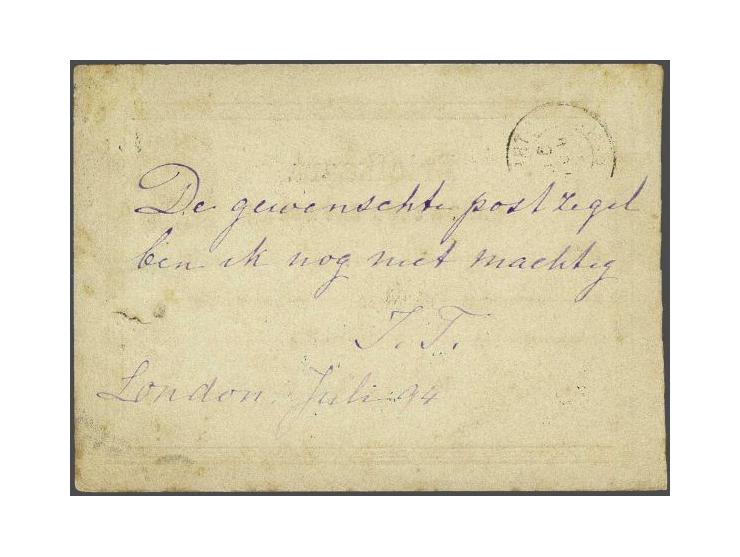 De gewenschte postzegel
ben ik nog niet machtig
J. T.
London. Juli 94